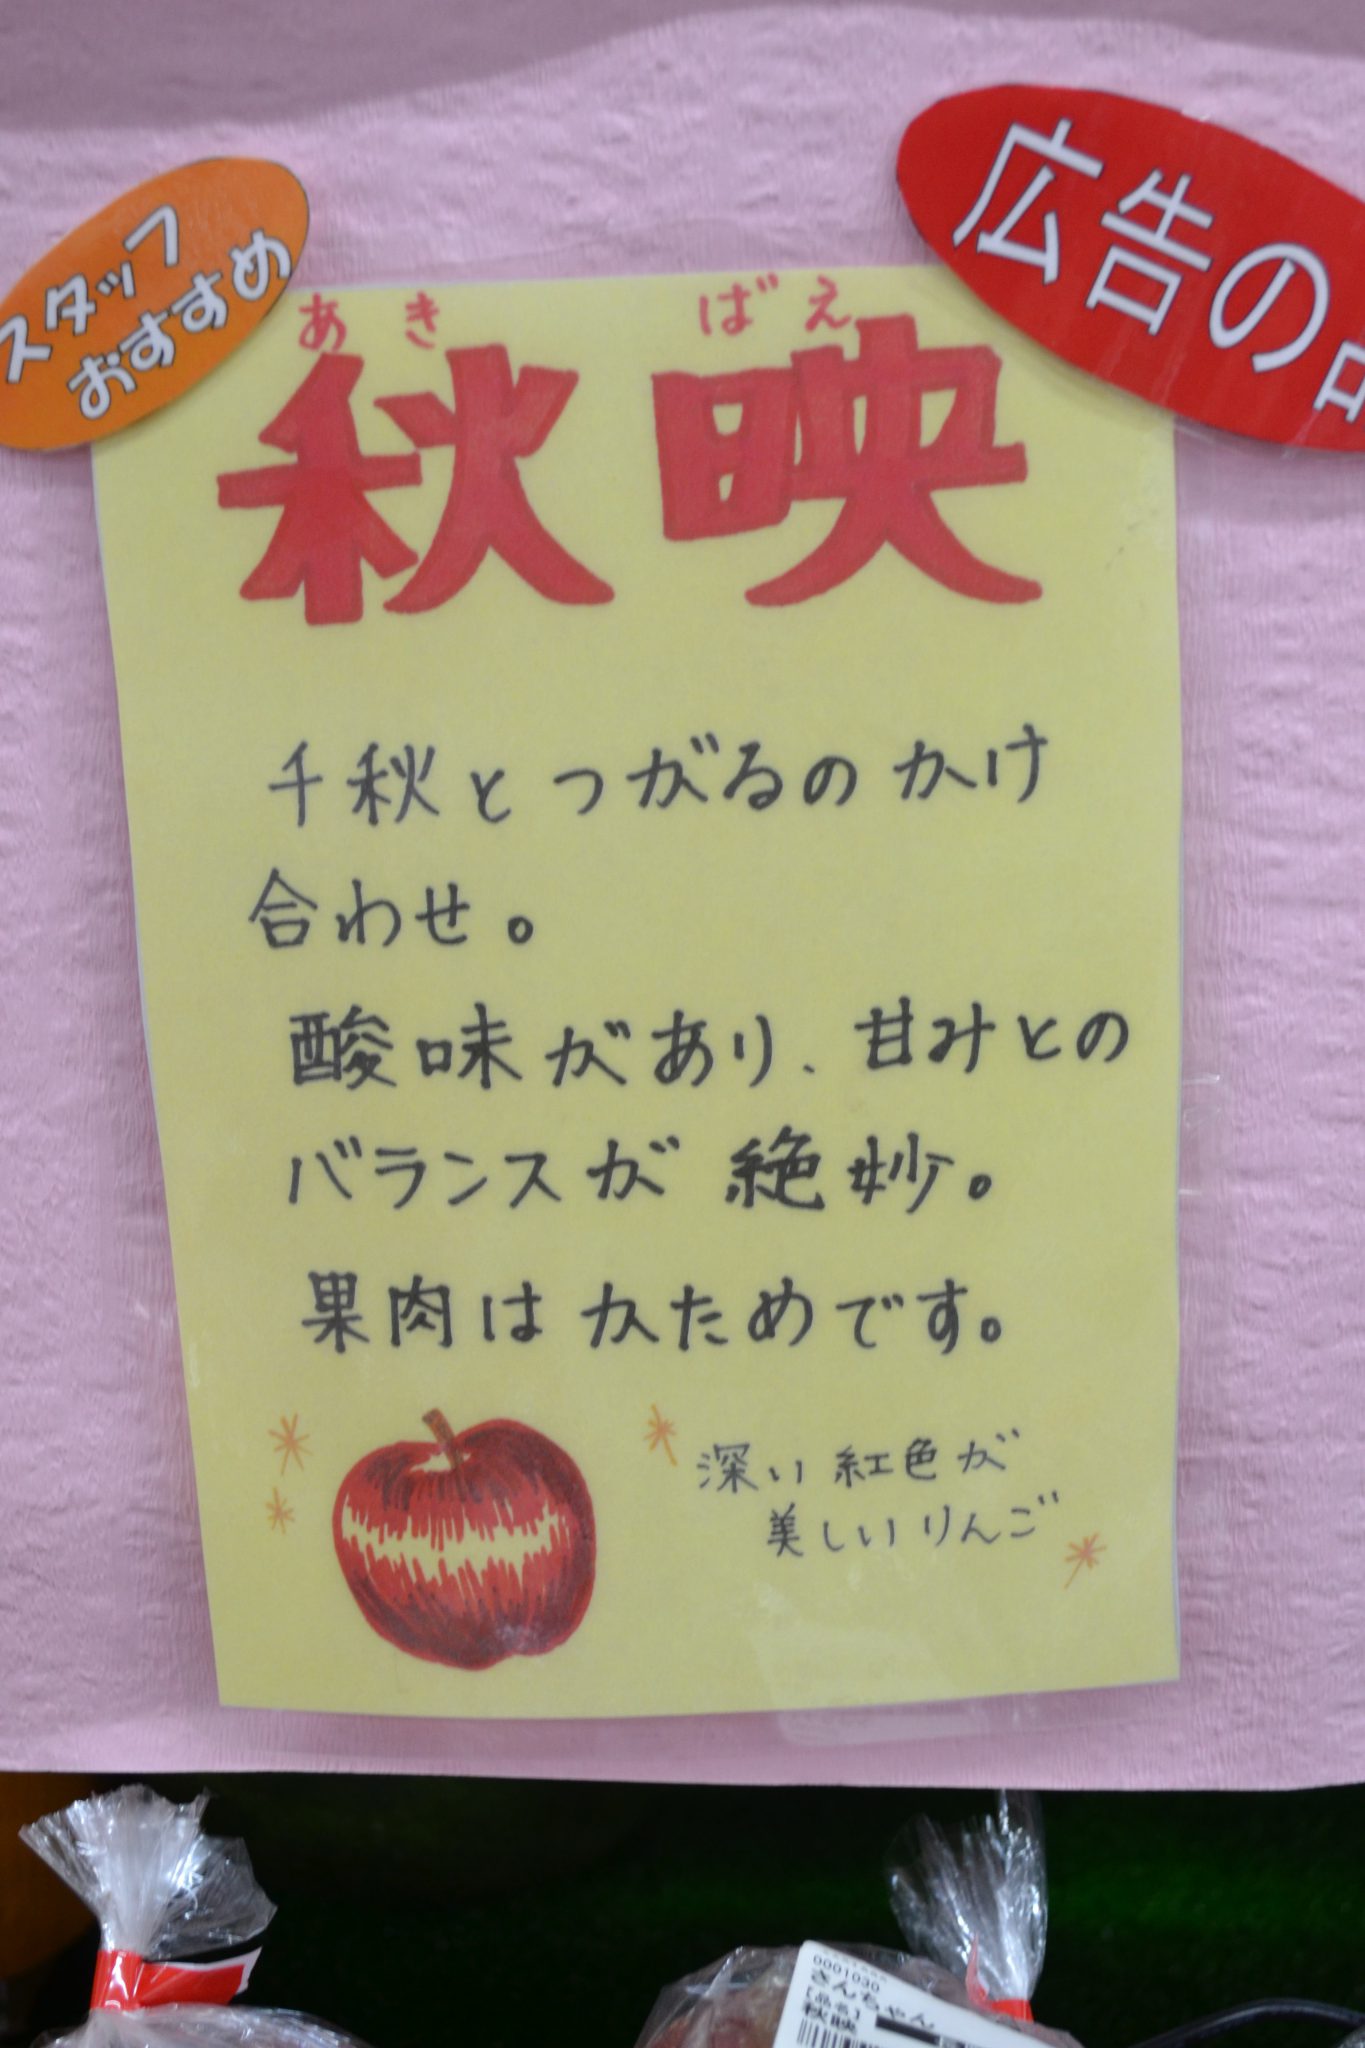 スタッフ
おすすめ
広告の品
あきばえ
秋映
千秋とつがるのかけ
合わせ。
酸味があり、甘みとの
バランスが絶妙。
果肉はかためです。
深い紅色が
美しいりんご
0001030
さんちゃん
[品名]
秋映